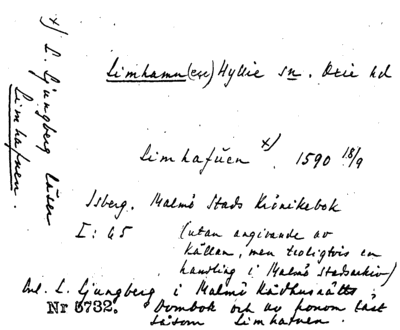 Limhamn (ese) Hyllie sn. Oxie hd
Limhafúen x) 1590 18/9
Isberg. Malmö Stads Krönikebok
I: 45 (utan angivande av
källan, men troligtvis en
handling i Malmö stadsarkiv)
Enl. L. Ljungberg i Malmö Rådhusrätts
Nr 5732. Dombok och av honom läst
såsom Limhafuen.
x) L. Ljungberg läser
Limhafuen.